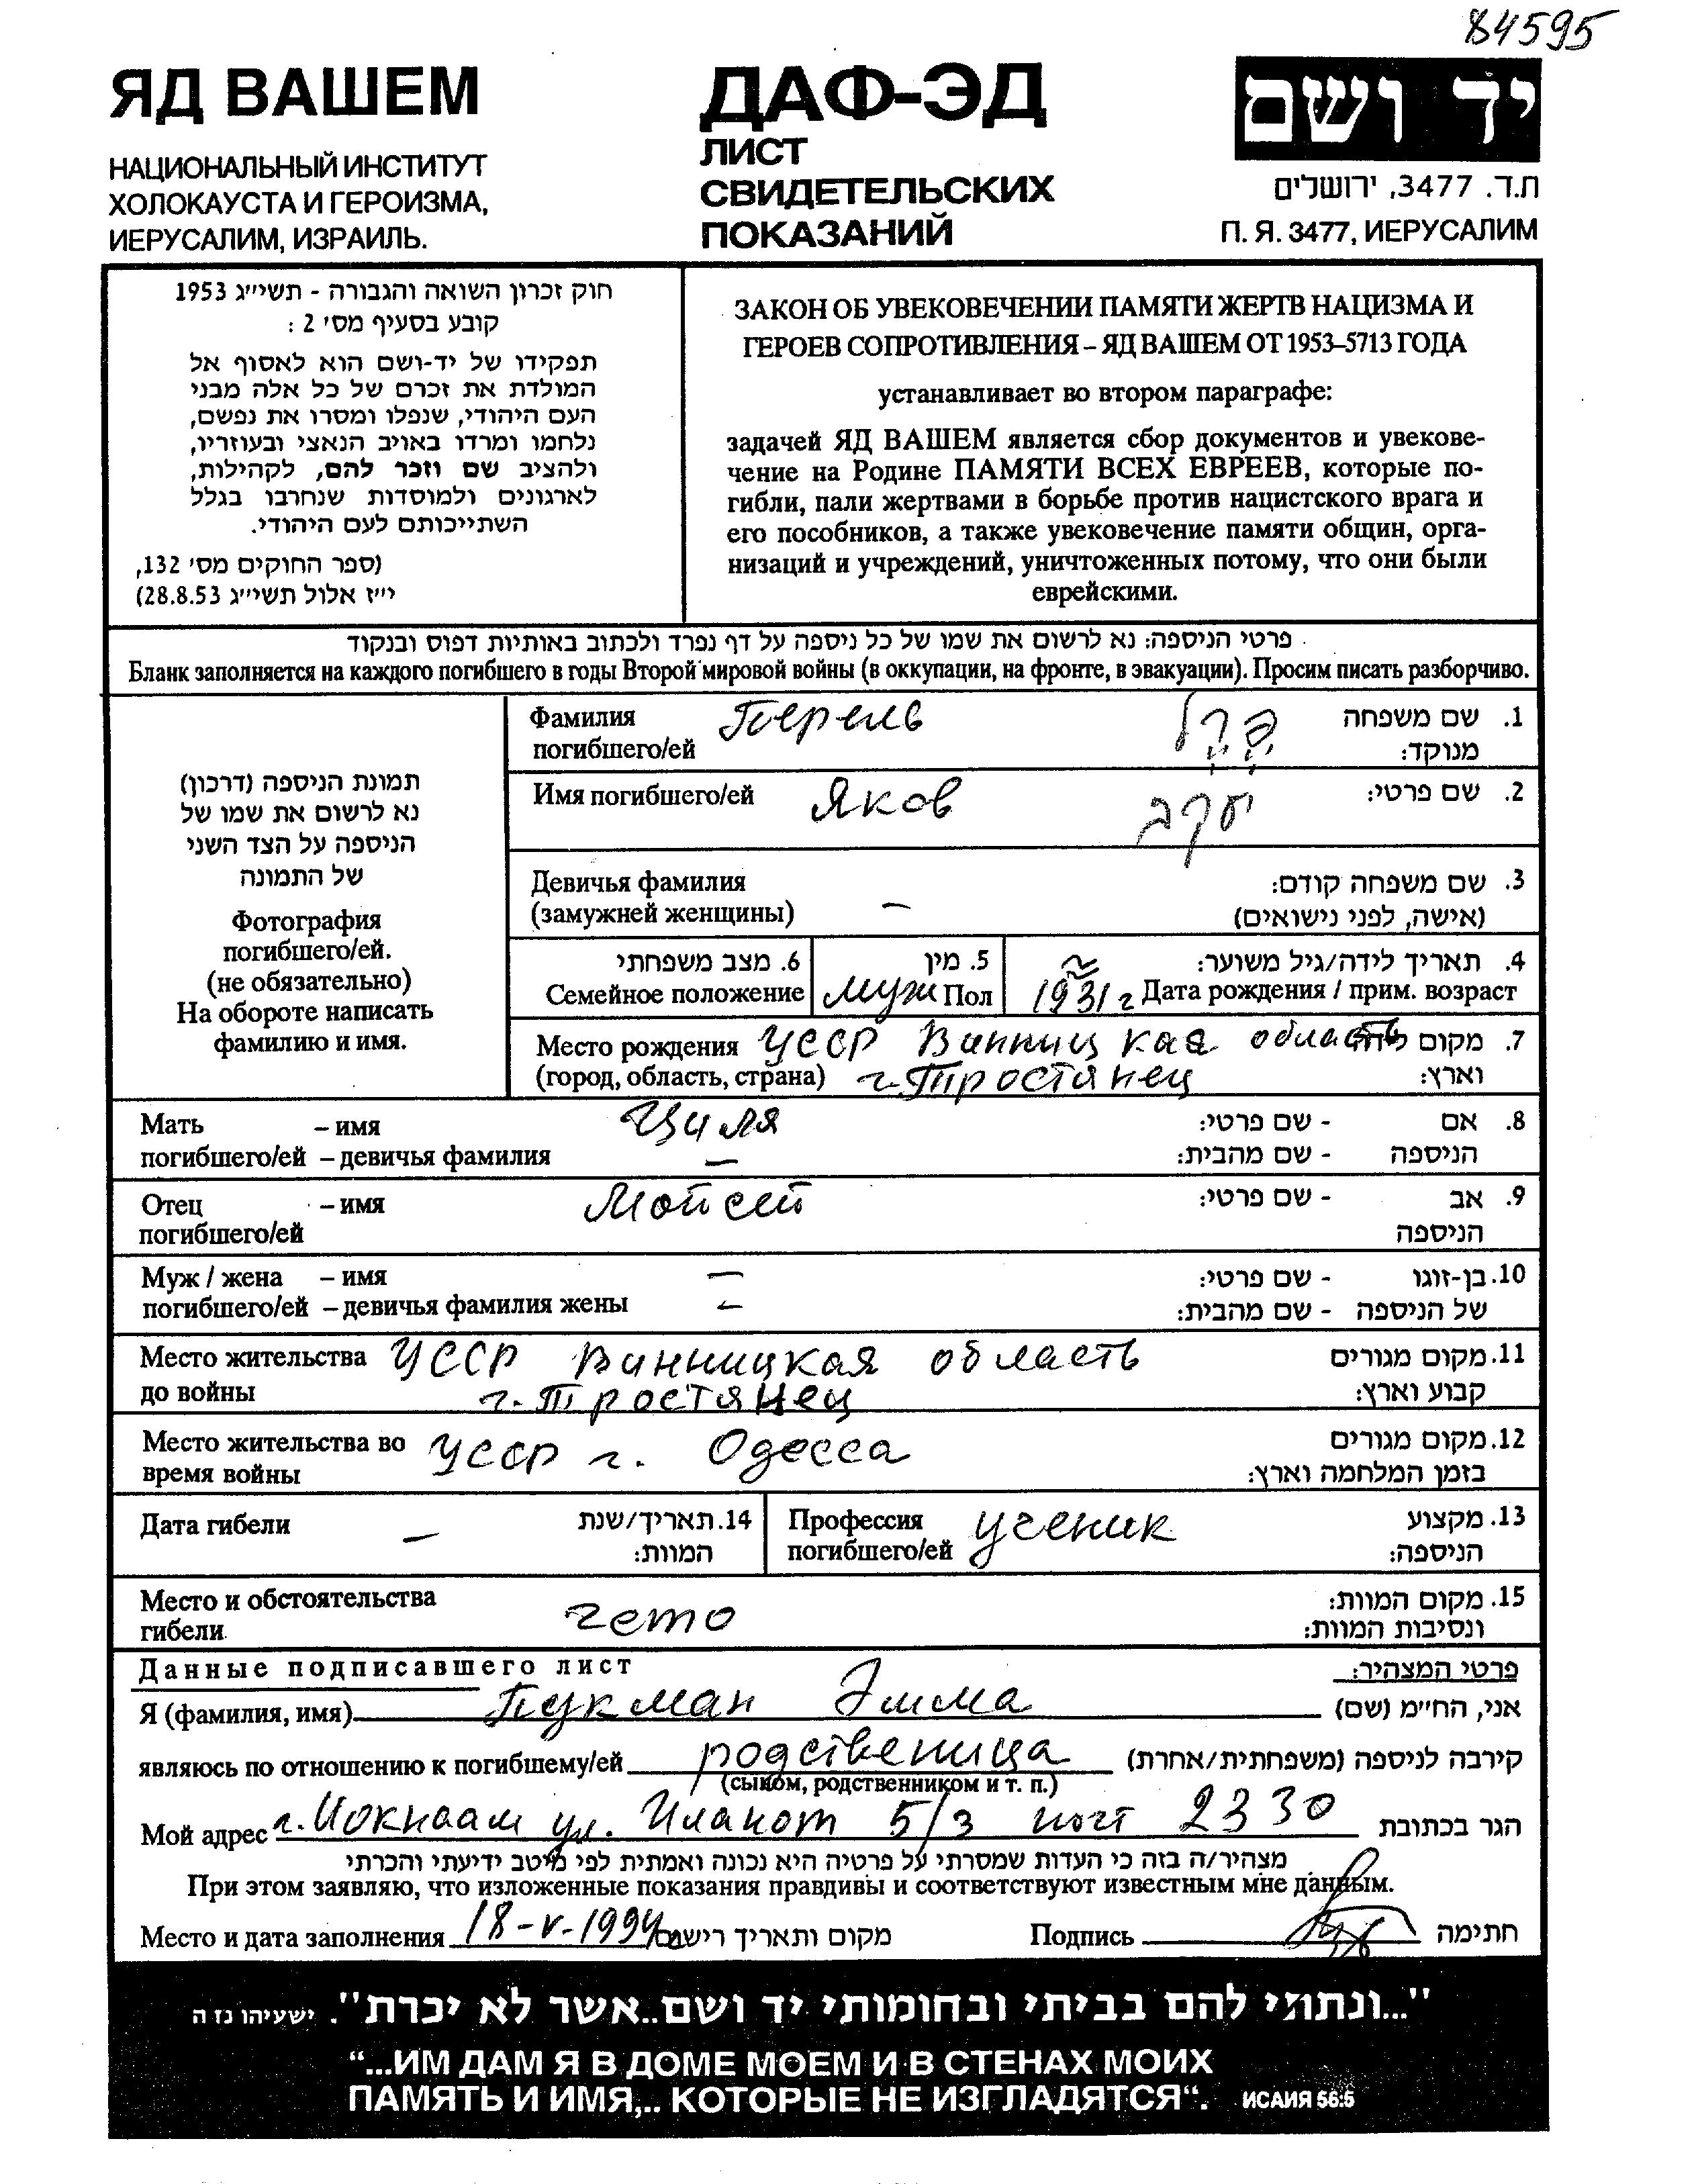 84595
ЯД ВАШЕМ
НАЦИОНАЛЬНЫЙ ИНСТИТУТ
ХОЛОКАУСТА И ГЕРОИЗМА,
ИЕРУСАЛИМ, ИЗРАИЛЬ.
ДАФ-ЭД
ЛИСТ
СВИДЕТЕЛЬСКИХ
ПОКАЗАНИЙ
יד ושם
ת.ד. 3477, ירושלים
П. Я. 3477, ИЕРУСАЛИМ
חוק זכרון השואה והגבורה - תשי״ג 1953
קובע בסעיף מס׳ 2 :
תפקידו של יד-ושם הוא לאסוף אל
המולדת את זכרם של כל אלה מבני
העם היהודי, שנפלו ומסרו את נפשם,
נלחמו ומרדו באויב הנאצי ובעוזריו,
ולהציב שם וזכר להם, לקהילות,
לארגונים ולמוסדות שנחרבו בגלל
השתייכותם לעם היהודי.
(ספר החוקים מס׳ 132,
י״ז אלול תשי״ג 28.8.53)
ЗАКОН ОБ УВЕКОВЕЧЕНИИ ПАМЯТИ ЖЕРТВ НАЦИЗМА И
ГЕРОЕВ СОПРОТИВЛЕНИЯ – ЯД ВАШЕМ ОТ 1953–5713 ГОДА
устанавливает во втором параграфе:
задачей ЯД ВАШЕМ является сбор документов и увекове-
чение на Родине ПАМЯТИ ВСЕХ ЕВРЕЕВ, которые по-
гибли, пали жертвами в борьбе против нацистского врага и
его пособников, а также увековечение памяти общин, орга-
низаций и учреждений, уничтоженных потому, что они были
еврейскими.
פרטי הניספה: נא לרשום את שמו של כל ניספה על דף נפרד ולכתוב באותיות דפוס ובנקוד
Бланк заполняется на каждого погибшего в годы Второй мировой войны (в оккупации, на фронте, в эвакуации). Просим писать разборчиво.
תמונת הניספה (דרכון)
נא לרשום את שמו של
הניספה על הצד השני
של התמונה
Фотография
погибшего/ей.
(не обязательно)
На обороте написать
фамилию и имя.
Фамилия Перель פרל 1. שם משפחה
погибшего/ей מנוקד:
Имя погибшего/ей Яков יעקב 2. שם פרטי:
Девичья фамилия 3. שם משפחה קודם:
(замужней женщины) – (אישה, לפני נישואים)
6. מצב משפחתי 5. מין ~ 4. תאריך לידה/גיל משוער:
Семейное положение муж Пол 1931 г Дата рождения / прим. возраст
Место рождения УССР Винницкая область 7. מקום
(город, область, страна) г. Тростянец וארץ:
Мать – имя Циля 8. אם - שם פרטי:
погибшего/ей – девичья фамилия – הניספה - שם מהבית:
Отец – имя Мойсей 9. אב - שם פרטי:
погибшего/ей הניספה
Муж / жена – имя – 10. בן-זוגו - שם פרטי:
погибшего/ей – девичья фамилия жены – של הניספה - שם מהבית:
Место жительства УССР Винницкая область 11. מקום מגורים
до войны г. Тростянец קבוע וארץ:
Место жительства во УССР г. Одесса 12. מקום מגורים
время войны בזמן המלחמה וארץ:
Дата гибели – 14. תאריך/שנת
המוות:
Профессия ученик 13. מקצוע
погибшего/ей הניספה:
Место и обстоятельства гето 15. מקום המוות:
гибели ונסיבות המוות:
Данные подписавшего лист פרטי המצהיר:
Я (фамилия, имя) Пукман Эмма אני, החי״מ (שם)
являюсь по отношению к погибшему/ей родственица קירבה לניספה (משפחתית/אחרת)
(сыном, родственником и т. п.)
Мой адрес г. Иокнаам ул. Иланот 5/3 почт 2330 הגר בכתובת
מצהיר/ה בזה כי העדות שמסרתי על פרטיה היא נכונה ואמתית לפי מיטב ידיעתי והכרתי
При этом заявляю, что изложенные показания правдивы и соответствуют известным мне данным.
Место и дата заполнения 18-V-1994 מקום ותאריך רישום Подпись חתימה
"...ונתתי להם בביתי ובחומותי יד ושם..אשר לא יכרת". ישעיהו נז ה
“...ИМ ДАМ Я В ДОМЕ МОЕМ И В СТЕНАХ МОИХ
ПАМЯТЬ И ИМЯ,.. КОТОРЫЕ НЕ ИЗГЛАДЯТСЯ“. ИСАИЯ 56:5